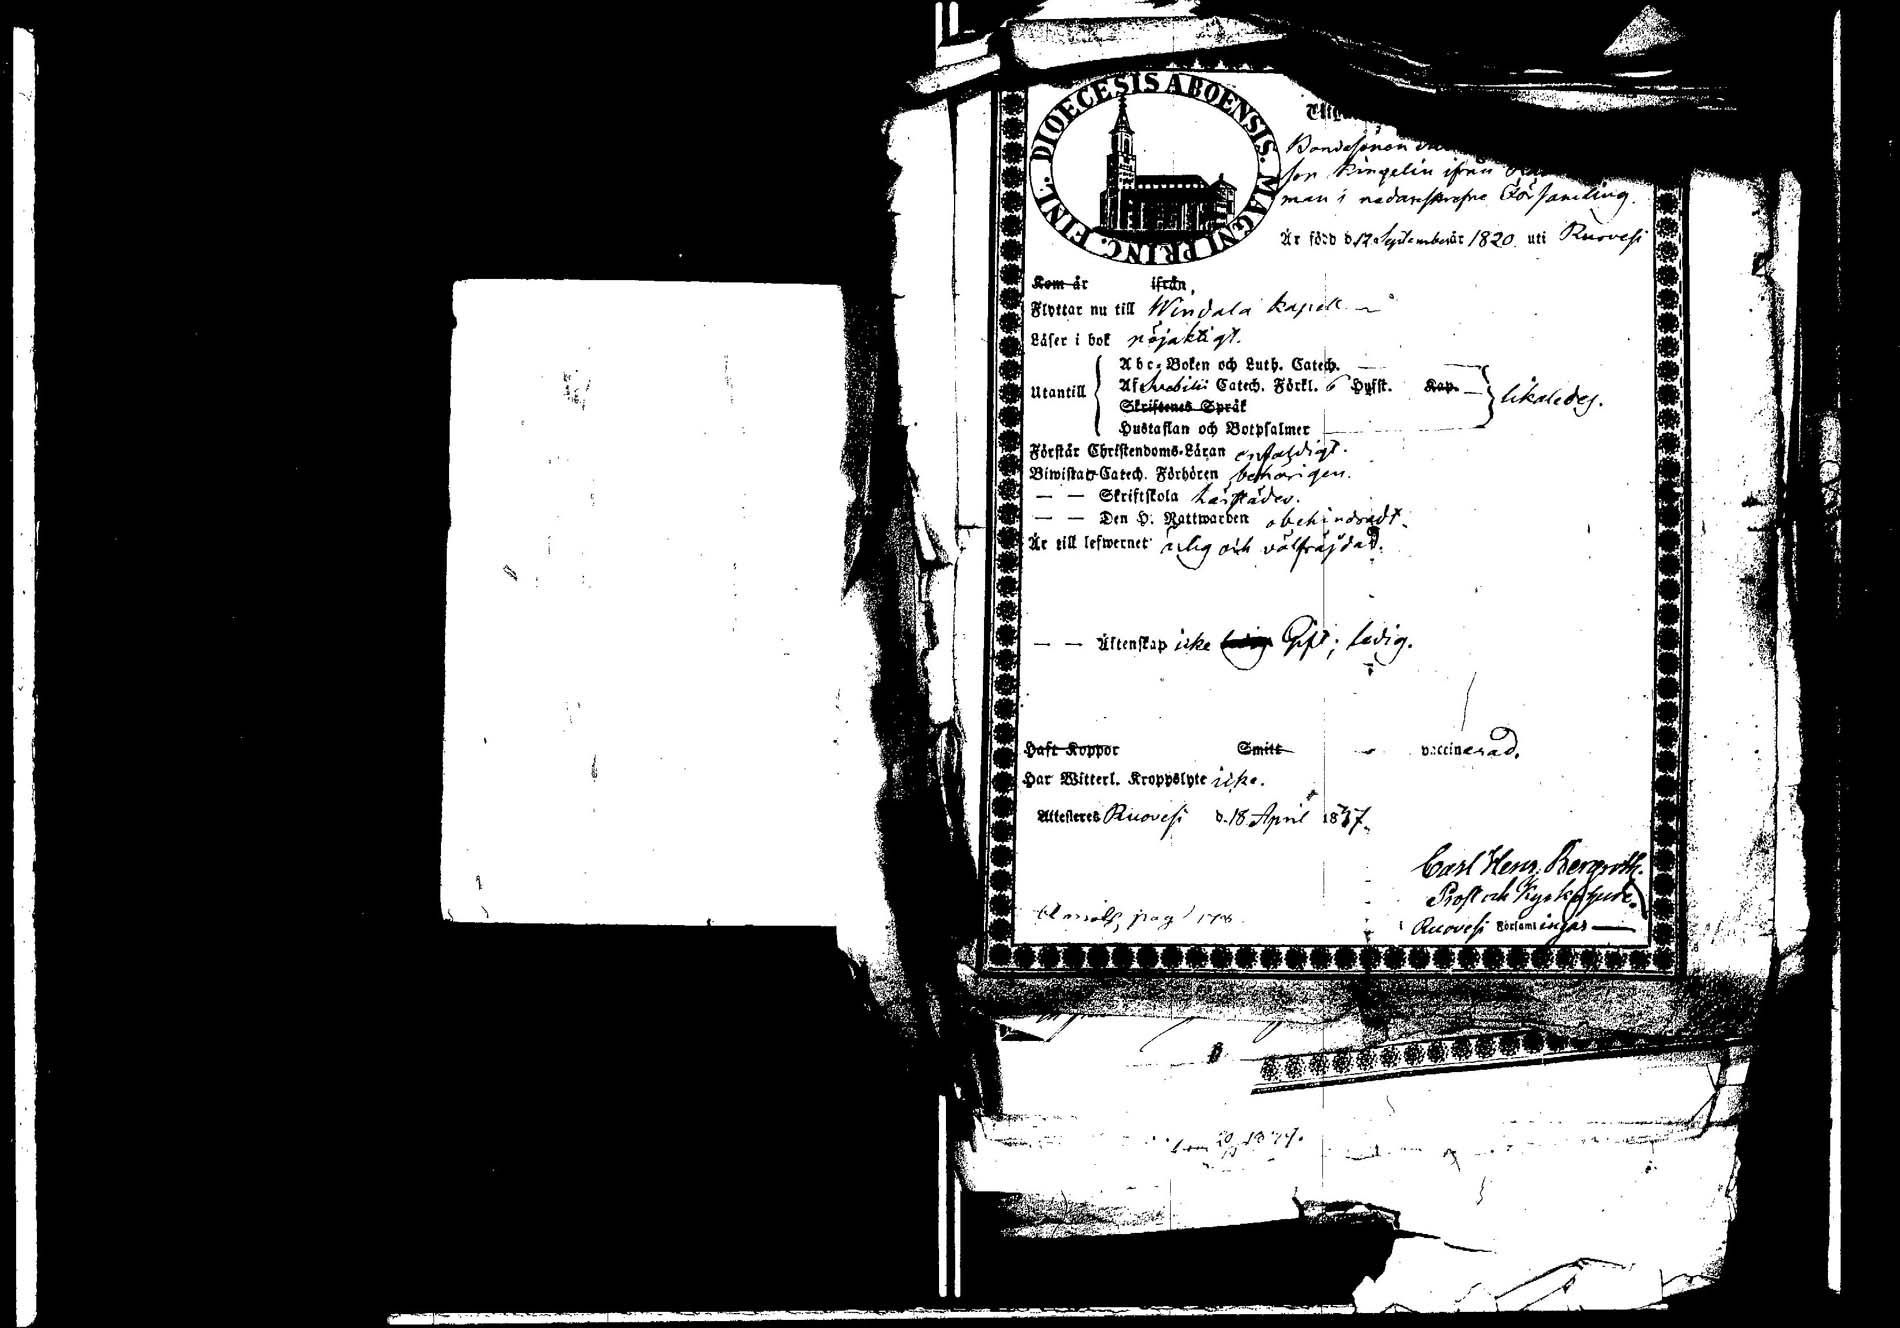 DIOECESIS ABOENSIS. MAGNI PRINC. FINL.
Bondesonen
son Ringelin ifrån
man i nedanskrefne Församling.
Är född d. 12 September år 1820 uti Ruovesi
Kom år ifrån
Flyttar nu till Wirdala Kapell
Läser i bok nöjaktigt.
Abc-Boken och Luth. Catech.
Utantill Af Svebilii Catech. Förkl. 6 Hufst. Kap. likaledes.
Skriftenes Språk
Hustaflan och Botpsalmer
Förstår Christendoms-Läran enfaldigt.
Biwistat Catech. Förhören behörigen.
— — Skriftskola härstädes.
— — Den H. Nattwarden obehindradt.
Är till lefwernet ärlig och välfräjdad.
— — Äktenskap icke Gift; ledig.
Haft Koppor Smitt vaccinerad.
Har Witterl. Kroppslyte icke.
Attesteres Ruovesi d. 18 April 1837.
Carl Henr. Bergroth.
Prost och Kyrkoherde
i Ruovesi Församlingar